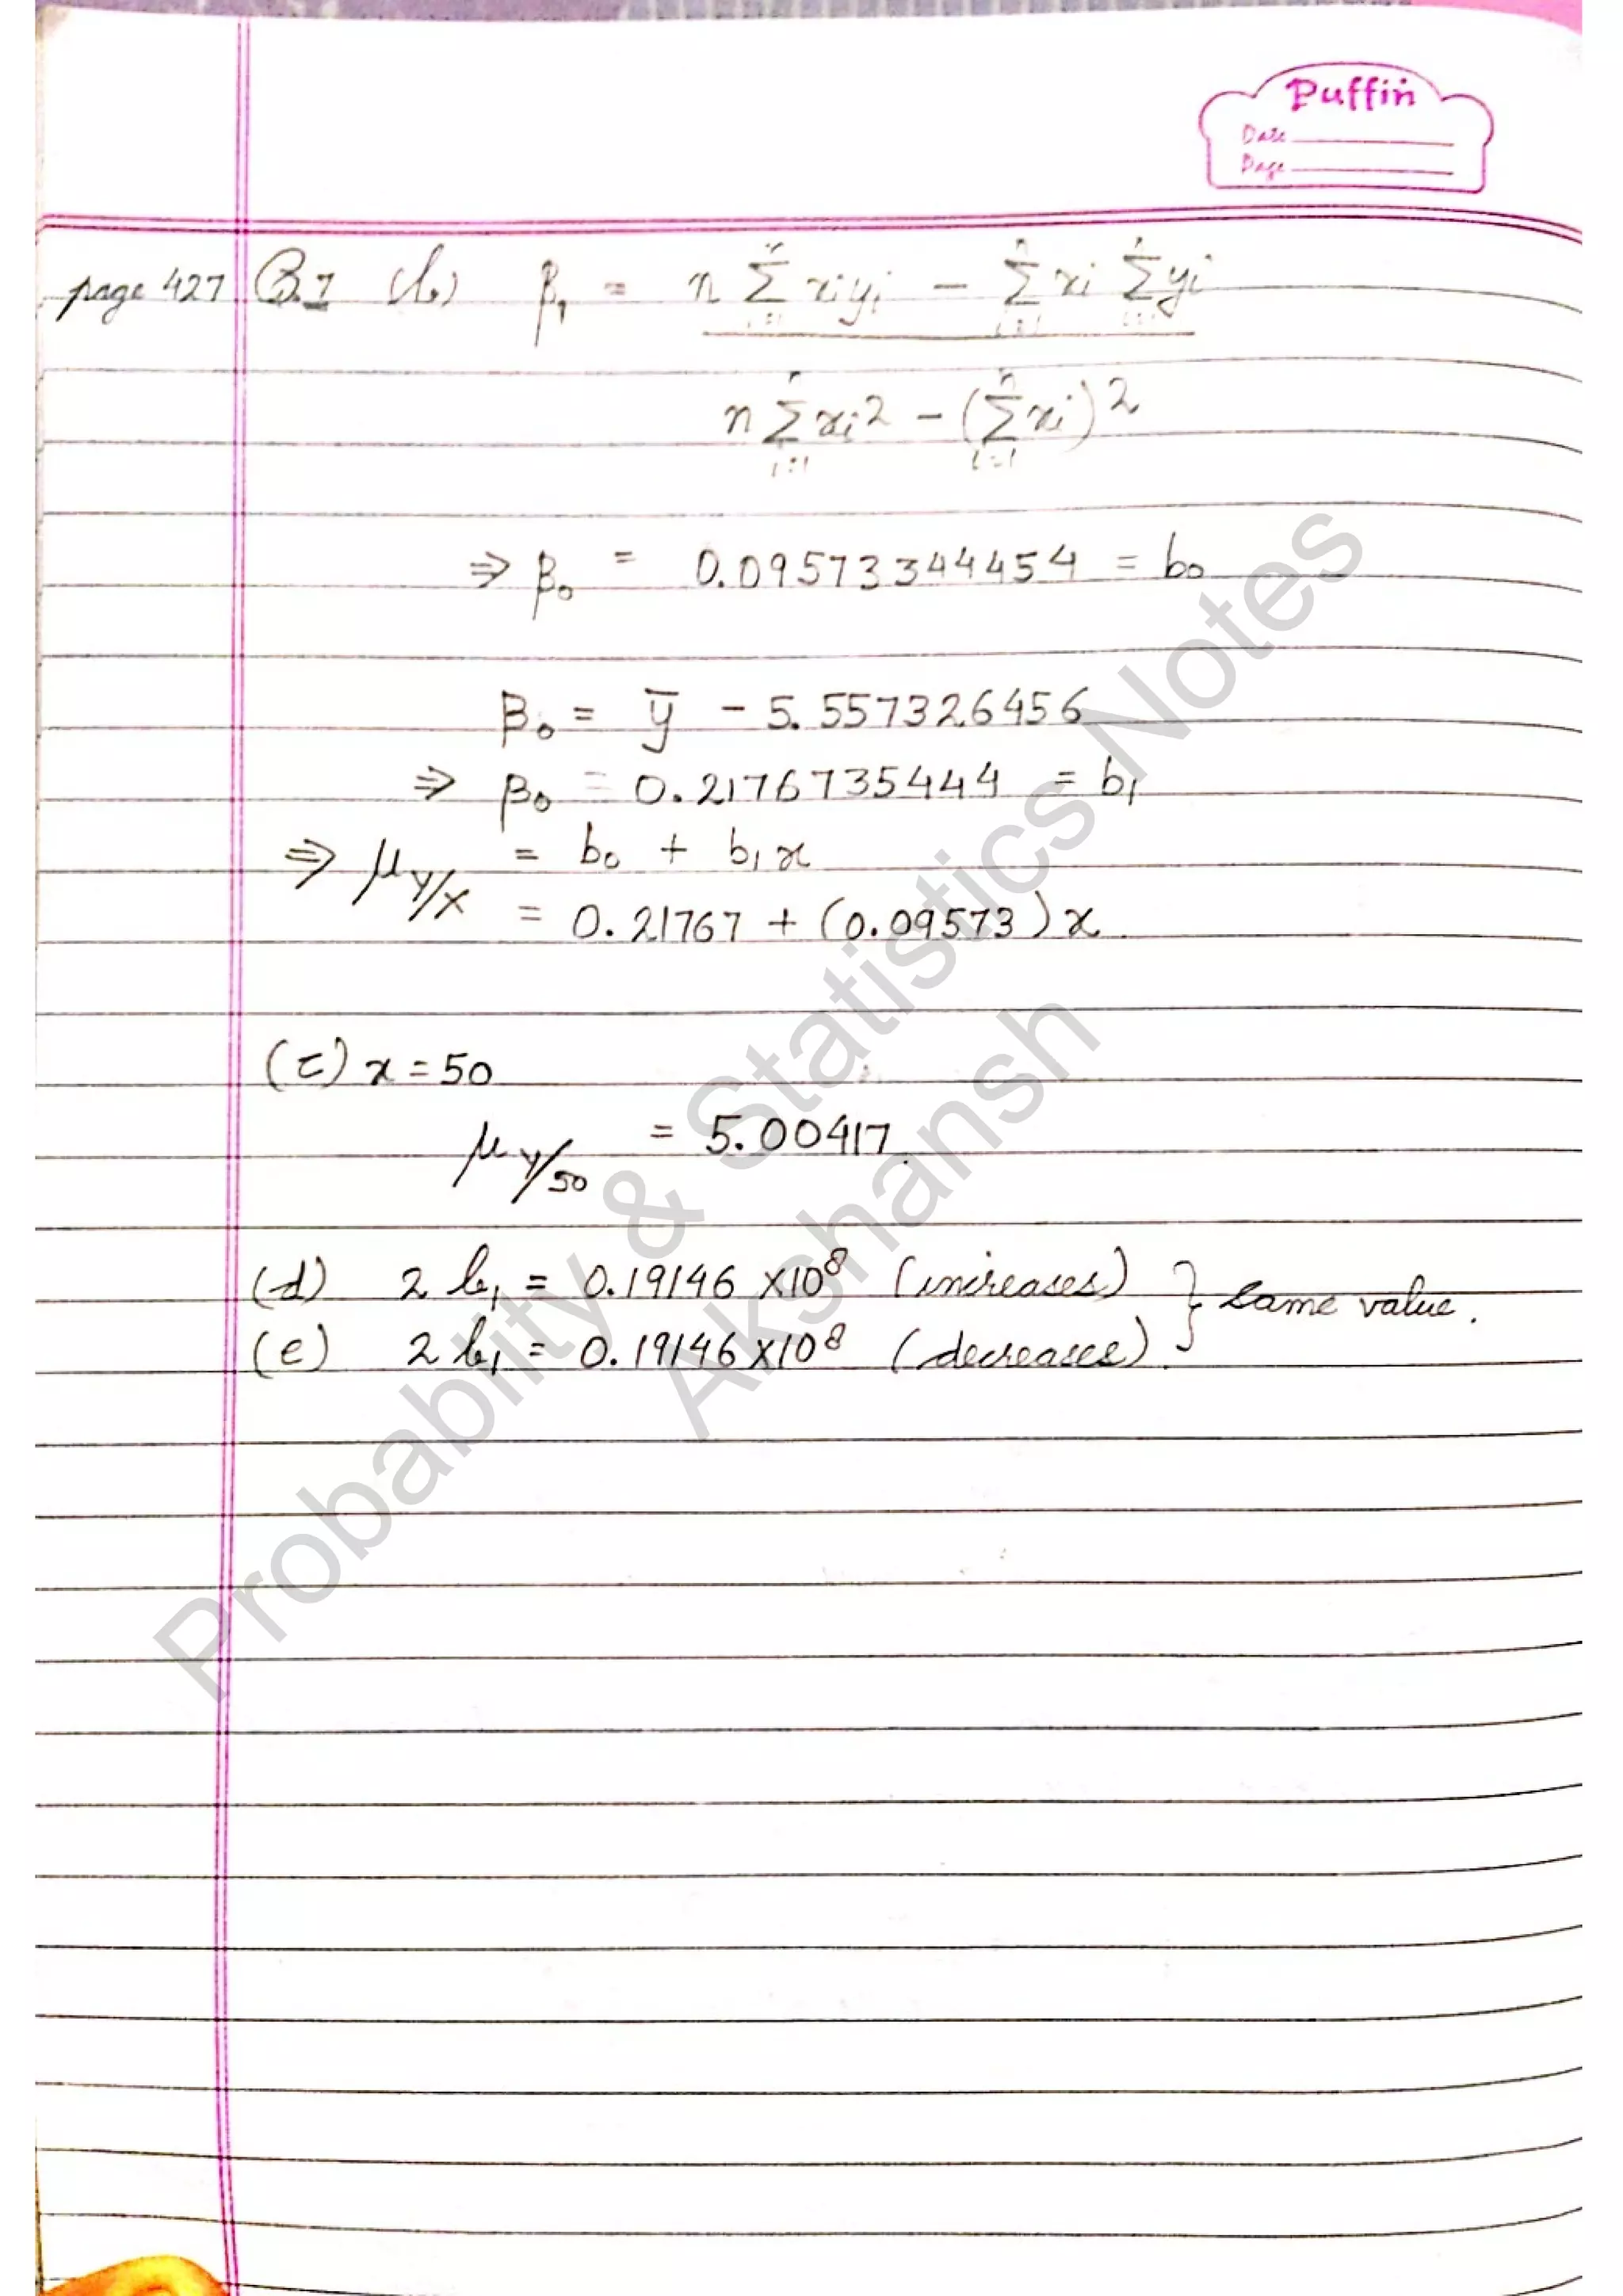 Puffin
Date
Page
page 427 Q.7 (b) β₁ = n Σ xiyi - Σ xi Σ yi
i=1 i=1 i=1
n Σ xi² - (Σ xi)²
i=1 i=1
⇒ β₀ = 0.09573344454 = b₀
β₀ = ȳ - 5.557326456
⇒ β₀ = 0.2176735444 = b₁
⇒ μ Y/X = b₀ + b₁x
= 0.21767 + (0.09573)x
(c) x = 50
μ Y/50 = 5.00417.
(d) 2b₁ = 0.19146 X10⁸ (increases) } same value.
(e) 2b₁ = 0.19146 X10⁸ (decreases).
Probability & Statistics Notes
Akshansh